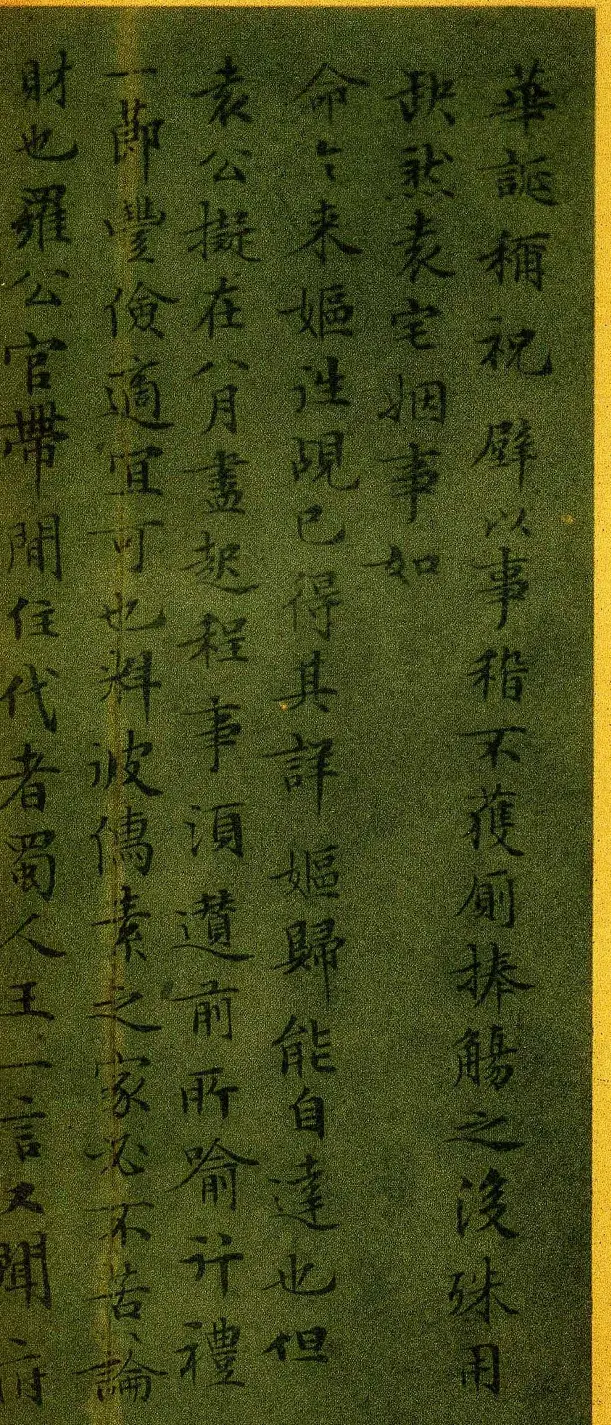 華誕稱祝璧以事稽不獲厠捧觴之後殊用
缺然袁宅姻事如
命今来嫗徃覘已得其詳嫗歸能自達也但
袁公擬在八月盡起程事須趲前所喻行禮
一節豐儉適宜可也料彼儒素之家必不苦論
財也羅公官帶閒住代者蜀人王一言又聞府